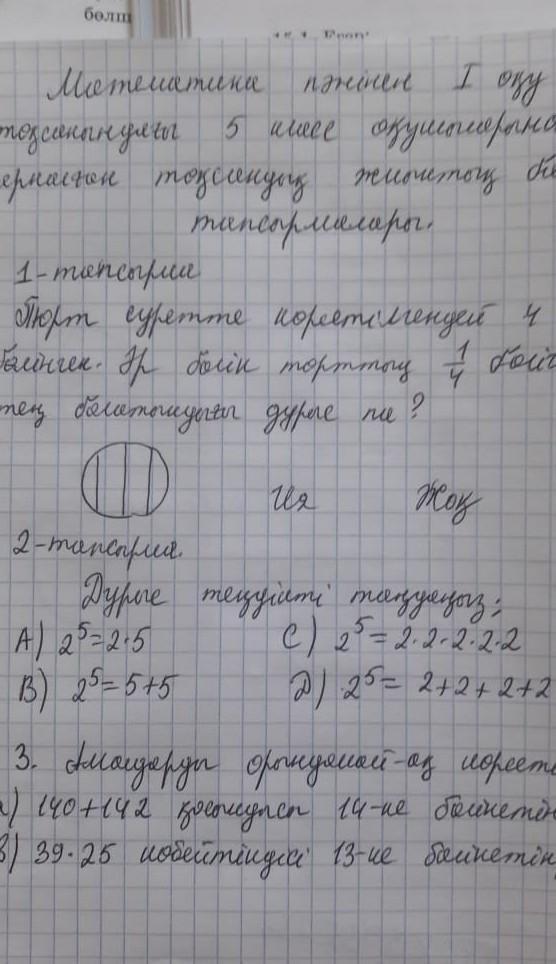 бөлш
Математика пәнінен I оқу
тоқсанындағы 5 класс оқушыларына
арналған тоқсандық жиынтық ба
тапсырмалары.
1-тапсырма
Торт суретте көрсетілгендей 4
бөлінген. Әр бөлік торттың 1/4 бөліг
тең болатындығы дұрыс па?
Ия Жоқ
2-тапсырма.
Дұрыс теңдікті таңдаңыз;
А) 2⁵=2·5 С) 2⁵=2·2·2·2·2
В) 2⁵=5+5 Д) 2⁵= 2+2+2+2
3. Амалдарды орындамай-ақ көрсете
а) 140+142 қосындысы 14-ке бөлінетін
в) 39·25 көбейтіндісі 13-ке бөлінетін